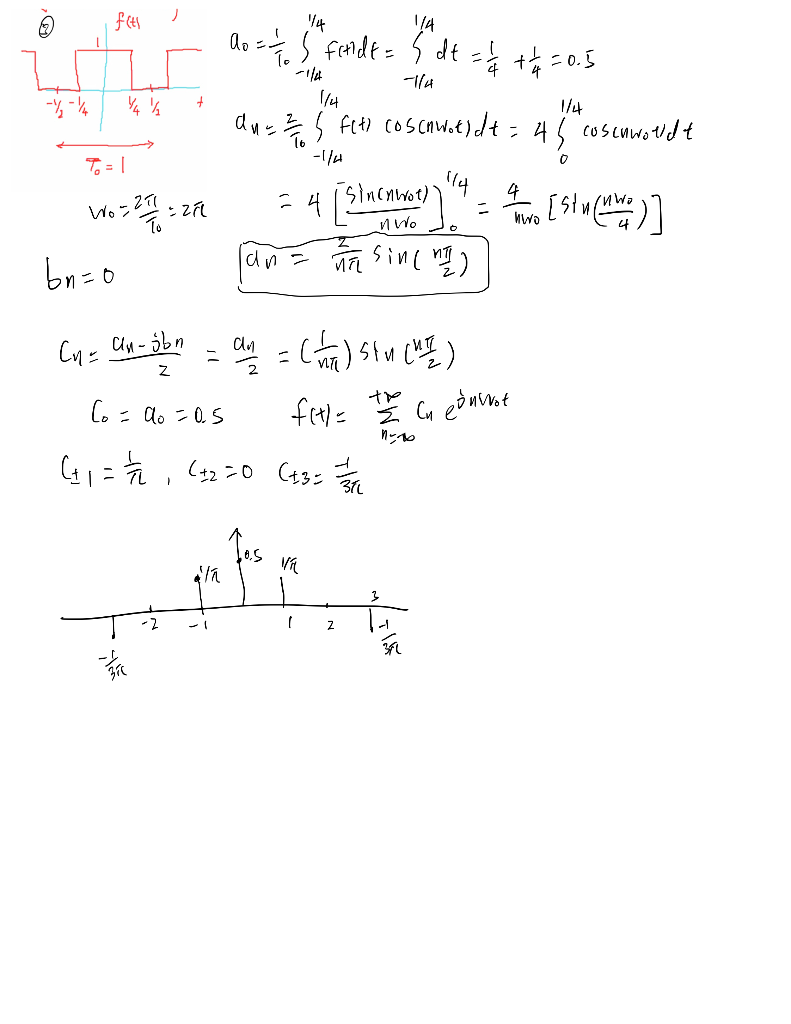 ② f(t)
1
-1/2 -1/4 1/4 1/2 t
T₀ = 1
a₀ = 1/T₀ ∫_{-1/4}^{1/4} f(t)dt = ∫_{-1/4}^{1/4} dt = 1/4 + 1/4 = 0.5
aₙ = 2/T₀ ∫_{-1/4}^{1/4} f(t) cos(nw₀t)dt = 4 ∫_0^{1/4} cos(nw₀t)dt
w₀ = 2π/T₀ = 2π
= 4 [sin(nw₀t)/nw₀]_0^{1/4} = 4/nw₀ [sin(nw₀/4)]
aₙ = 2/nπ sin(nπ/2)
bₙ = 0
Cₙ = (aₙ - jbₙ)/2 = aₙ/2 = (1/nπ) sin(nπ/2)
C₀ = a₀ = 0.5 f(t) = Σ_{n=-∞}^{+∞} Cₙ e^{jnw₀t}
C±1 = 1/π , C±2 = 0 C±3 = -1/3π
1/π 0.5 1/π
-2 -1 1 2 3
-1/3π -1/3π